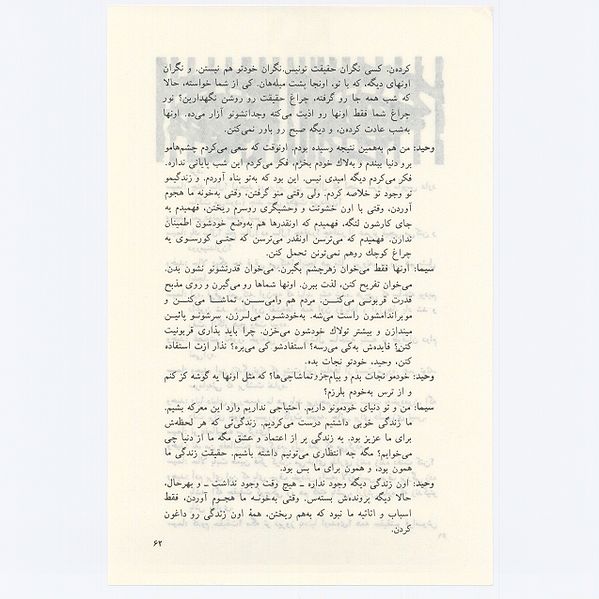 کرده‌ن. کسی نگران حقیقت تونیس.نگران خودتو هم نیستن، و نگران
اونهای دیگه، که با تو، اونجا پشت میله‌هان. کی از شما خواسته، حالا
که شب همه جا رو گرفته، چراغ حقیقت رو روشن نگهدارین؟ نور
چراغ شما فقط اونها رو اذیت می‌کنه وجدانشونو آزار می‌ده. اونها
به‌شب عادت کرده‌ن، و دیگه صبح رو باور نمی‌کنن.
وحید: من هم به‌همین نتیجه رسیده بودم. اونوقت که سعی می‌کردم چشم‌هامو
برو دنیا ببندم و به‌لاك خودم بخزم، فکر می‌کردم این شب پایانی نداره.
فکر می‌کردم دیگه امیدی نیس. این بود که به‌تو پناه آوردم. و زندگیمو
تو وجود تو خلاصه کردم. ولی وقتی منو گرفتن، وقتی به‌خونه ما هجوم
آوردن، وقتی با اون خشونت و وحشیگری روسرم ریختن، فهمیدم یه
جای کارشون لنگه، فهمیدم که اونقدرها هم به‌وضع خودشون اطمینان
ندارن. فهمیدم که می‌ترسن اونقدر می‌ترسن که حتی کورسوی یه
چراغ کوچك روهم نمی‌تونن تحمل کنن.
سیما: اونها فقط می‌خوان زهرچشم بگیرن. می‌خوان قدرتشونو نشون بدن.
می‌خوان تفریح کنن، لذت ببرن. اونها شماها رو می‌گیرن و روی مذبح
قدرت قربونی می‌کنن. مردم هم وامی‌سن، تماشا می‌کنن و
موبراندامشون راست می‌شه. به‌خودشون می‌لرزن، سرشونو پائین
میندازن و بیشتر تولاك خودشون می‌خزن. چرا باید بذاری قربونیت
کنن؟ فایده‌ش به‌کی می‌رسه؟ استفادشو کی می‌بره؟ نذار ازت استفاده
کنن، وحید، خودتو نجات بده.
وحید: خودمو نجات بدم و بیام‌جزوتماشاچی‌ها؟ که مثل اونها یه گوشه کز کنم
و از ترس به‌خودم بلرزم؟
سیما: من و تو دنیای خودمونو داریم. احتیاجی نداریم وارد این معرکه بشیم.
ما زندگی خوبی داشتیم درست می‌کردیم. زندگی‌ئی که هر لحظه‌ش
برای ما عزیز بود. یه زندگی پر از اعتماد و عشق مگه ما از دنیا چی
می‌خوایم؟ مگه چه انتظاری می‌تونیم داشته باشیم. حقیقت زندگی ما
همون بود، و همون برای ما بس بود.
وحید: اون زندگی دیگه وجود نداره ـ هیچ وقت وجود نداشت ـ و بهرحال،
حالا دیگه پرونده‌ش بسته‌س. وقتی به‌خونه ما هجوم آوردن، فقط
اسباب و اثاثیه ما نبود که به‌هم ریختن، همهٔ اون زندگی رو داغون
کردن.
۶۲